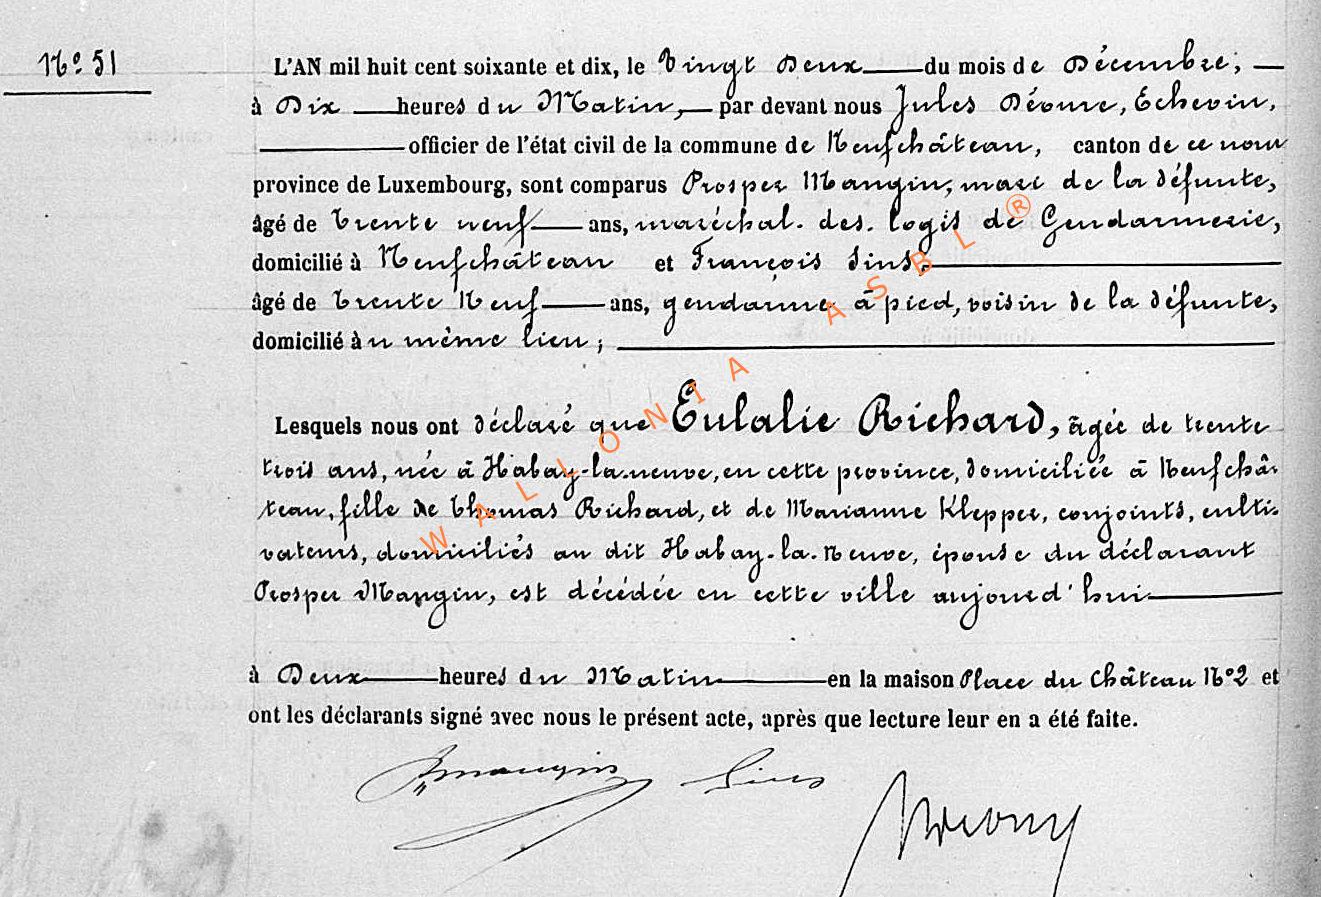 N° 51
L'AN mil huit cent soixante et dix, le Vingt Deux du mois de Décembre;
à Dix heures du Matin, par devant nous Jules Déome, Échevin,
officier de l'état civil de la commune de Neufchâteau, canton de ce nom
province de Luxembourg, sont comparus Prosper Mangin, mari de la défunte,
âgé de trente neuf ans, maréchal. des. logis de Gendarmerie,
domicilié à Neufchâteau et François Sins,
âgé de trente Neuf ans, gendarme à pied, voisin de la défunte,
domicilié au même lieu;
Lesquels nous ont déclaré que Eulalie Richard, âgée de trente
trois ans, née à Habay-la-neuve, en cette province, domiciliée à Neufchâ-
teau, fille de Thomas Richard, et de Marianne Klepper, conjoints, culti-
vateurs, domiciliés au dit Habay-la-Neuve, épouse du déclarant
Prosper Mangin, est décédée en cette ville aujourd'hui
à Deux heures du Matin en la maison Place du Château N° 2 et
ont les déclarants signé avec nous le présent acte, après que lecture leur en a été faite.
PMangin Sins
WALLONIA ASBL ®